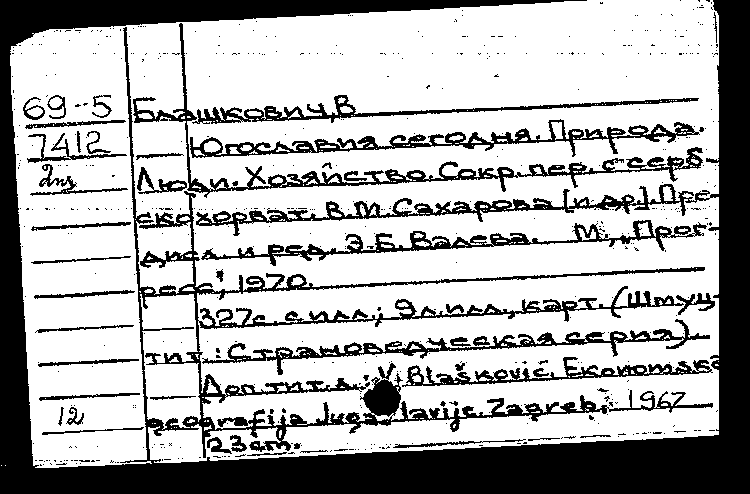 69-5 Блашкович, В
7412 Югославия сегодня. Природа.
Люди. Хозяйство. Сокр. пер. с серб-
скохорват. В.М. Сахарова [и др.]. Пре-
дисл. и ред. Э.Б. Валева. М., „Прог-
ресс", 1970.
327с. с илл.; 9л. илл., карт. (Шмуц-
тит.: Страноведческая серия).
Доп. тит. л.: V. Blašković. Ekonomska
12 geografija Jugoslavije. Zagreb, 1967
23 cm.